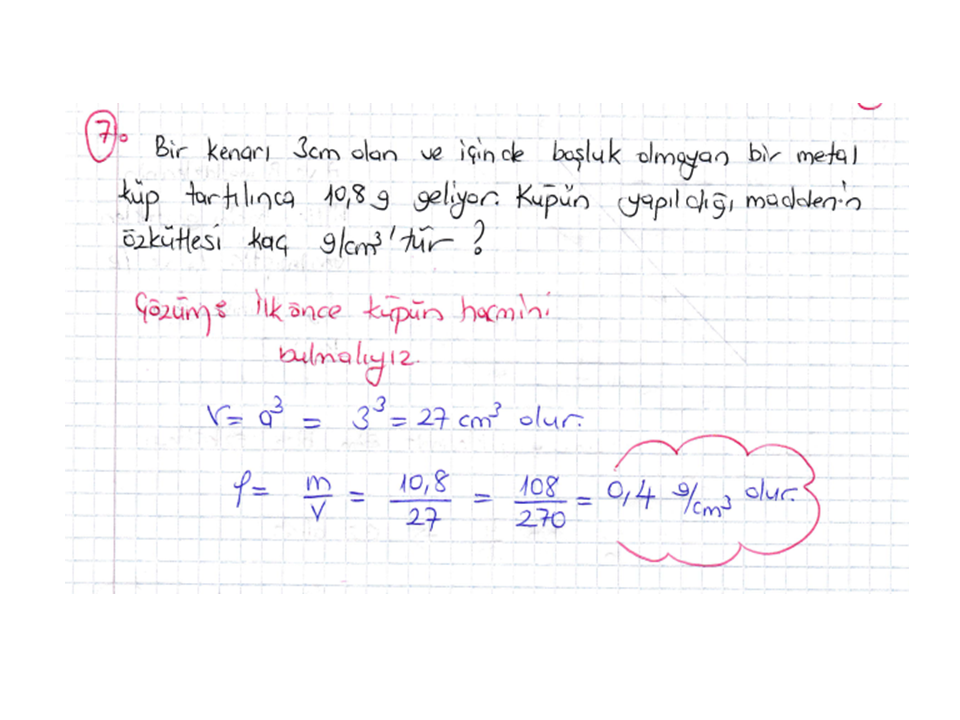 7. Bir kenarı 3cm olan ve içinde boşluk olmayan bir metal
küp tartılınca 10,8 g geliyor. Küpün yapıldığı maddenin
özkütlesi kaç g/cm³'tür ?
Çözüm: İlkönce küpün hacmini
bulmalıyız.
V= a³ = 3³ = 27 cm³ olur.
ρ= m/V = 10,8/27 = 108/270 = 0,4 g/cm³ olur.